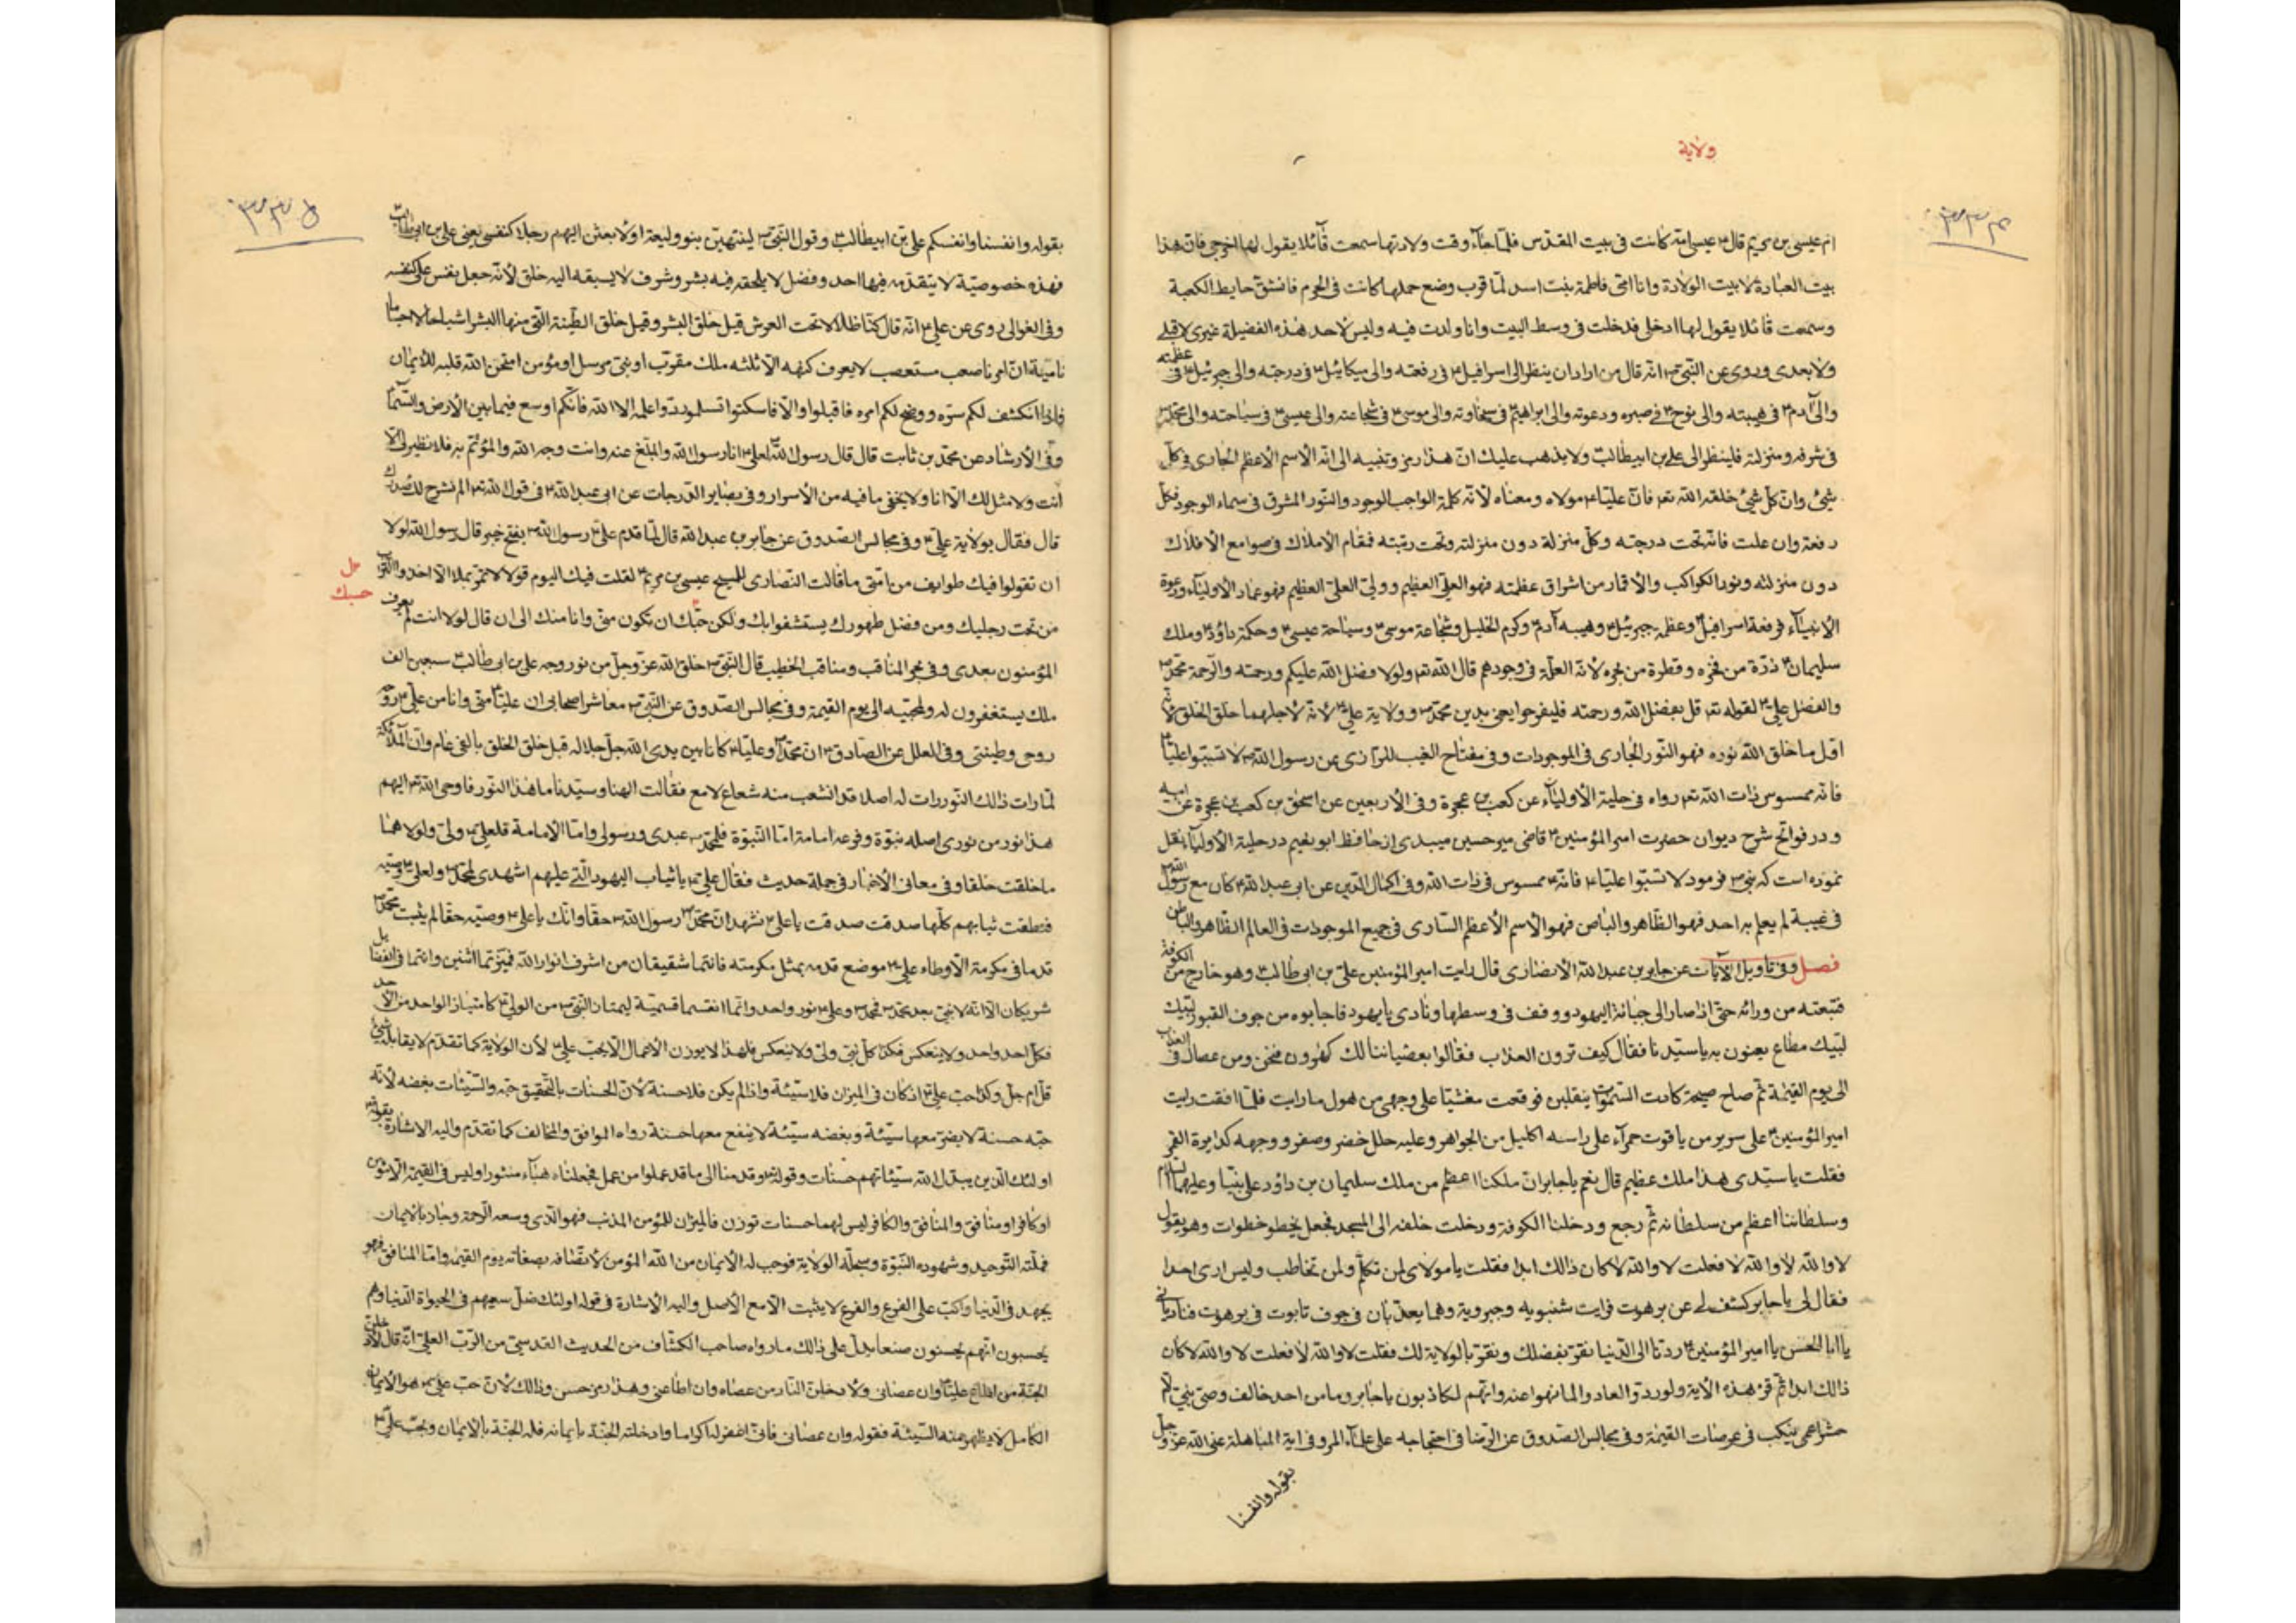 ولاية
٣٣٤
ام عيسى بن مريم قال ع عيسى امّه كانت فى بيت المقدّس فلمّا جاء وقت ولادتها سمعت قائلا يقول لها اخرجى فانّ هذا
بيت العبادة لا بيت الولادة وانا امّى فاطمة بنت اسد لمّا قرب وضع حملها كانت فى الحرم فانشقّ حايط الكعبة
وسمعت قائلا يقول لها ادخلى فدخلت فى وسط البيت وانا ولدت فيه وليس لاحد هذه الفضيلة غيرى لا قبلى
ولا بعدى وروى عن النّبى ص انّه قال من اراد ان ينظر الى اسرافيل ع فى رفعته والى ميكائيل ع فى درجته والى جبرئيل ع فى عظمته
والى آدم ع فى هيبته والى نوح ع فى صبره ودعوته والى ابراهيم ع فى سخاوته والى موسى ع فى شجاعته والى عيسى ع فى سياحته والى محمّد ص
فى شرفه ومنزلته فلينظر الى على بن ابيطالب ولا يذهب عليك انّ هذا رمز وتنبيه الى انّه الاسم الاعظم الجارى فى كلّ
شئ وانّ كلّ شئ خلقه الله تعه فانّ عليّا ع مولاه ومعناه لأنّه كلمة الواجب الوجود والنّور المشرق فى سماء الوجود فكلّ
رفعة وان علت فانّه تحت درجته وكلّ منزلة دون منزلته وتحت رتبته فمقام الاملاك فى صوامع الافلاك
دون منزلته ونور الكواكب والاقمار من اشراق عظمته فهو العلىّ العظيم وولىّ العلىّ العظيم فهو عماد الاولياء ودعوة
الانبياء فرفعة اسرافيل وعظمة جبرئيل ع وهيبه آدم ع وكرم الخليل وشجاعة موسى ع وسياحة عيسى ع وحكمة داؤد ع وملك
سليمان ع ذرّة من فخره وقطرة من بحره لأنّه العلّة فى وجودهم قال الله تعه ولولا فضل الله عليكم ورحمته والرّحمة محمّد ص
والفضل على ع لقوله تعه قل بفضل الله ورحمته فليفرحوا يعنى بدين محمّد ص وولاية على ع لأنّه لاجلهما خلق الخلق لأنّ
اوّل ما خلق الله نوره فهو النّور الجارى فى الموجودات وفى مفتاح الغيب للرّازى عن رسول الله ص لا تسبّوا عليّا ع
فانّه ممسوس ذات الله تعه رواه فى حلية الأولياء عن كعب بن عجرة وفى الأربعين عن اسحق بن كعب بن عجرة عن ابيه
ودر فواتح شرح ديوان حضرت امير المؤمنين ع قاضى مير حسين ميبدى از حافظ ابو نعيم در حلية الأولياء نقل
نموده است كه نبى ص فرمود لا تسبّوا عليّا ع فانّه ع ممسوس فى ذات الله وفى اكمال الدّين عن ابى عبد الله ع كان مع رسول الله ص
فى غيبة لم يعلم به احد فهو الظّاهر والباطن فهو الأسم الأعظم السّارى فى جميع الموجودات فى العالم الظّاهر والباطن
فصل وفى تاويل الآيات عن جابر بن عبد الله الأنصارى قال رايت امير المؤمنين علىّ بن ابى طالب ع وهو خارج من الكوفة
فتبعته من ورائه حتّى اذا صار الى جبّانة اليهود ووقف فى وسطها ونادى يا يهود فاجابوه من جوف القبور لبّيك
لبّيك مطاع يعنون به يا سيّدنا فقال كيف ترون العذاب فقالوا بعصياننا لك كهرون فنحن ومن عصاك فى العذاب
الى يوم القيمة ثمّ صاح صيحة كادت السّموات ينقلبن فوقعت مغشيّا على وجهى من هول ما رايت فلمّا افقت رايت
امير المؤمنين ع على سرير من ياقوت حمراء على راسه اكليل من الجواهر وعليه حلل خضر وصفر ووجهه كدايرة القمر
فقلت يا سيّدى هذا ملك عظيم قال نعم يا جابر انّ ملكنا اعظم من ملك سليمان بن داؤد على نبيّنا وعليهما السلام
وسلطاننا اعظم من سلطانه ثمّ رجع ودخلنا الكوفة ودخلت خلفه الى المسجد فجعل يخطو خطوات وهو يقول
لا والله لا والله لا فعلت لا والله لا كان ذالك ابدا فقلت يا مولاى لمن تكلّم ولمن تخاطب وليس ارى احدا
فقال لى يا جابر كشف لى عن برهوت فرايت شنبويه وحبرويه وهما يعذّبان فى جوف تابوت فى برهوت فناديانى
يا ابا الحسن يا امير المؤمنين ع ردّنا الى الدّنيا نقرّ بفضلك ونقرّ بالولاية لك فقلت لا والله لا فعلت لا والله لا كان
ذالك ابدا ثمّ قرء هذه الآية ولو ردّوا لعادوا لما نهوا عنه وانّهم لكاذبون يا جابر وما من احد خالف وصىّ نبىّ الّا
حشر اعمى ينكب فى عرصات القيمة وفى مجالس الصّدوق عن الرّضا فى احتجاجه على علماء المرو فى اية المباهلة عنى الله عزّ وجلّ
بقوله وانفسنا
٣٣٥
بقوله وانفسنا وانفسكم على بن ابيطالب ع وقول النّبى ص لينتهينّ بنو وليعة او لابعثنّ اليهم رجلا كنفسى يعنى على بن ابيطالب
فهذه خصوصيّة لا يتقدّمه فيها احد وفضل لا يلحقه فيه بشر وشرف لا يسبقه اليه خلق لأنّه جعل نفس على كنفسه
وفى الغوالى روى عن على ع انّه قال كنّا ظلالا تحت العرش قبل خلق البشر وقبل خلق الطّينة الّتى منها البشر اشباحا لا اجساما
نامية انّ امرنا صعب مستصعب لا يعرف كنهه الّا ثلثه ملك مقرّب او نبى مرسل او مؤمن امتحن الله قلبه للايمان
فاذا انكشف لكم سرّه ووضح لكم امره فاقبلوا والّا فاسكتوا تسلموا وردّوا علمه الى الله فانّكم اوسع فيما بين الأرض والسّماء
وفى الأرشاد عن محمّد بن ثابت قال قال رسول الله ص لعلى ع انا رسول الله والمبلّغ عنه وانت وجه الله والمؤتمّ به فلا نظير لى الّا
انت ولا مثل لك الّا انا ولا يخفى ما فيه من الأسرار وفى بصاير الدّرجات عن ابى عبد الله ع فى قول الله تعه الم نشرح لك صدرك
قال فقال بولاية على ع وفى مجالس الصّدوق عن جابر بن عبد الله قال لمّا قدم على ع رسول الله ص بفتح خيبر قال رسول الله لولا
ان تقولوا فيك طوايف من امّتى ما قالت النّصارى للمسيح عيسى بن مريم ع لقلت فيك اليوم قولا لا تمرّ بملا الّا اخذوا التّراب
حسبك
من تحت رجليك ومن فضل طهورك يستشفوا بك ولكن حبّك ان تكون منّى وانا منك الى ان قال لولا انت لم يعرف
المؤمنون بعدى وفى بحر المناقب ومناقب الخطيب قال النّبى ص خلق الله عزّ وجلّ من نور وجه على بن ابى طالب ع سبعين الف
ملك يستغفرون له ولمحبّيه الى يوم القيمة وفى مجالس الصّدوق عن النّبى ص معاشر اصحابى ان عليّا ع منّى وانا من على ع روحه
روحى وطينتى وفى العلل عن الصّادق ع ان محمّدا ص وعليّا ع كانا بين يدى الله جلّ جلاله قبل خلق الخلق بالفى عام وانّ الملائكة
لمّا رات ذالك النّور رات له اصلا قد انشعب منه شعاع لامع فقالت الهنا وسيّدنا ما هذا النّور فاوحى الله تعه اليهم
هذا نور من نورى اصله نبوّة وفرعه امامة امّا النّبوّة فلمحمّد ص عبدى ورسولى وامّا الأمامة فلعلى ع ولىّ ولولا هما
ما خلقت خلقا وفى معانى الأخبار فى جملة حديث فقال على ع يا ثياب اليهود الّتى عليهم اشهدى لمحمّد ص ولعلى ع وصيّه
فنطقت ثيابهم كلّها صدقت صدقت يا على ع نشهد انّ محمّدا ص رسول الله ص حقّا وانّك يا على ع وصيّه حقّا لم يثبت محمّد ص
قدما فى مكرمة الّا وطاء على ع موضع قدمه بمثل مكرمته فانتما شقيقان من اشرف انوار الله فميّزتما اثنين وانتما فى الفضايل
شريكان الّا انّه لا نبىّ بعد محمّد ص فمحمّد ص وعلى ع نور واحد وانّما انقسما قسميّة ليمتاز النّبى ص من الولى ع كامتياز الواحد من الأحد
فكلّ احد واحد ولا ينعكس فكذا كلّ نبىّ ولىّ ولا ينعكس فلهذا لا يوزن الأعمال الّا بحبّ على ع لأن الولاية كما تقدّم لا يقابله شئ
قلّ ام جلّ وكذا حبّ على ع ان كان فى الميزان فلا سيّئة واذا لم يكن فلا حسنة لأنّ الحسنات بالتّحقيق حبّه والسّيّئات بغضه لأنّه
حبّه حسنة لا يضرّ معها سيّئة وبغضه سيّئة لا ينفع معها حسنة رواه الموافق والمخالف كما تقدّم واليه الاشارة بقوله
اولئك الّذين يبدّل الله سيّئاتهم حسنات وقوله تعه وقدمنا الى ما قد عملوا من عمل فجعلناه هباء منثورا وليس فى القيمة الّا مؤمن
او كافر او منافق والمنافق والكافر ليس لهما حسنات توزن فالميزان للمؤمن المذنب فهو الّذى وسعه الرّحمة وجاز بالايمان
فملّته التّوحيد وشهوده النّبوّة وسجلّه الولاية فوجب له الأيمان من الله المؤمن لاتّصافه بصفاته يوم القيمه وامّا المنافق فهو
يجهد فى الدّنيا واكبّ على الفرع والفرع لا يثبت الّا مع الأصل واليه الأشارة فى قوله اولئك ضلّ سعيهم فى الحيوة الدّنيا وهم
يحسبون انّهم يحسنون صنعا يدلّ على ذالك ما رواه صاحب الكشّاف من الحديث القدسىّ من الرّبّ العلىّ انّه قال لأدخلنّ
الجنّة من اطاع عليّا وان عصانى ولأدخلنّ النّار من عصاه وان اطاعنى وهذا رمز حسن وذالك لأنّ حبّ على ع هو الأيمان
الكامل لا يظهر منه السّيئة فقوله وان عصانى فانّى اغفر له اكراما وادخلته الجنّة بايمانه فله الجنّة بالايمان وبحبّ على ع